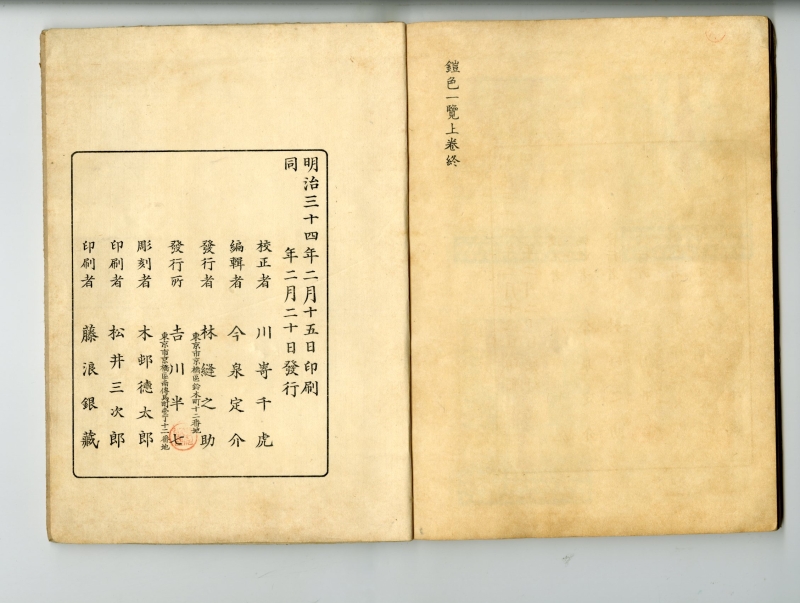 鎧色一覽上卷終
明治三十四年二月十五日印刷
同年二月二十日發行
校正者 川嵜千虎
編輯者 今泉定介
發行者 林縫之助
東京市京橋區鈴木町十二番地
發行所 吉川半七
東京市京橋區南傳馬町壹丁目十二番地
彫刻者 木邨德太郎
印刷者 松井三次郎
印刷者 藤浪銀藏